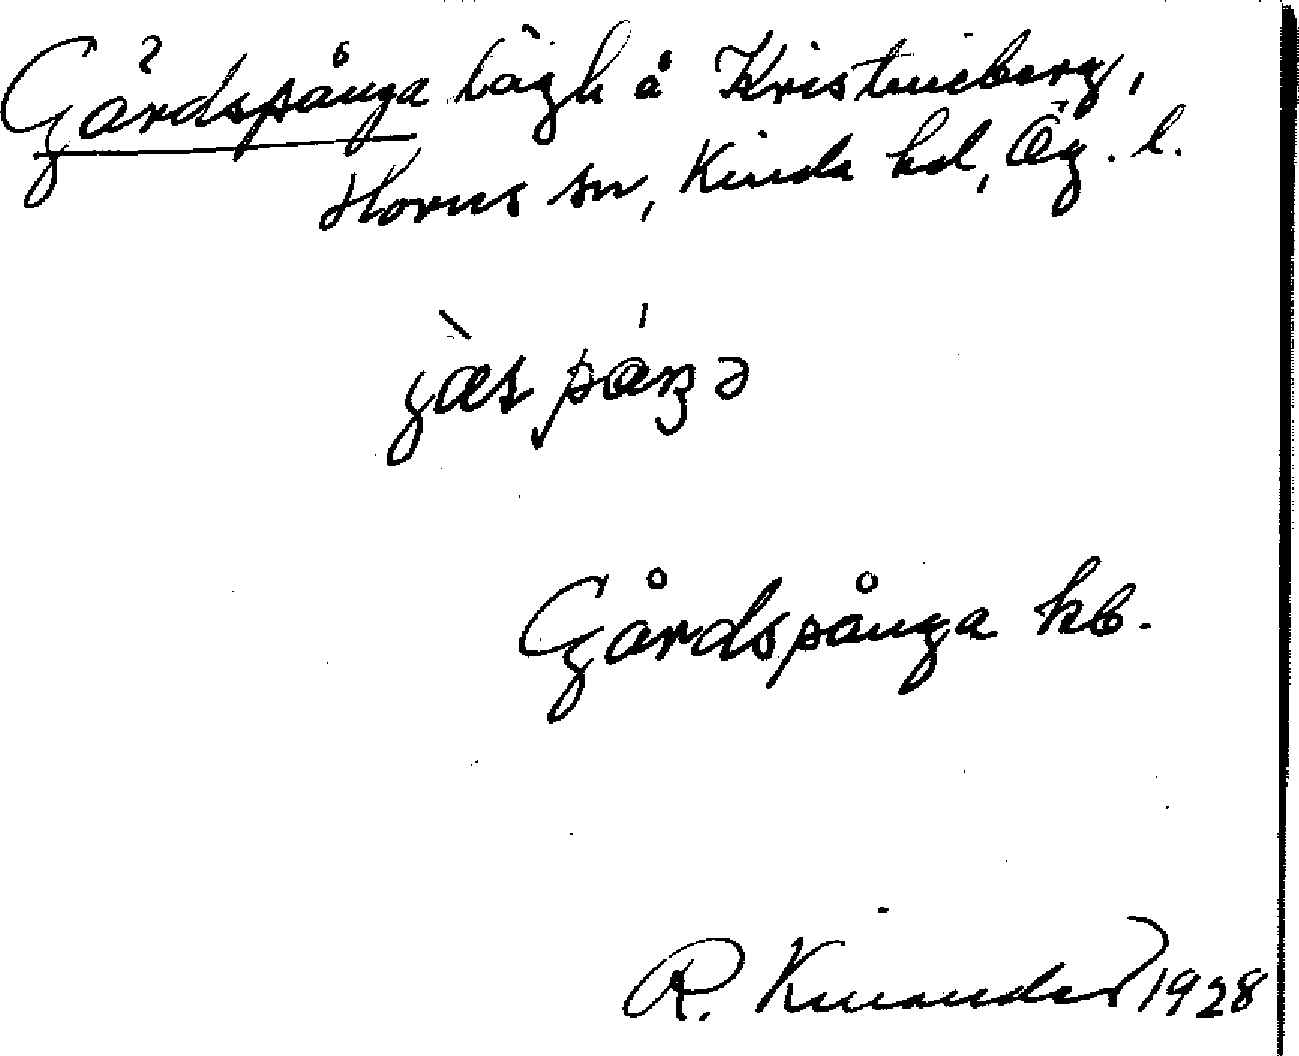 Gårdspånga lägh å Kristineberg,
Horns sn, Kinda hd, Ög. l.
Gårdspånga kb.
R. Kinander 1928